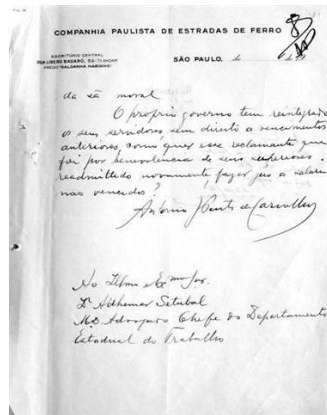 COMPANHIA PAULISTA DE ESTRADAS DE FERRO
ESCRIPTORIO CENTRAL
RUA LIBERO BADARÓ, 39-7º ANDAR
PREDIO "SALDANHA MARINHO"
SÃO PAULO, de de 19
da sã moral
O proprio governo tem reintegrado
os seus servidores sem direito a vencimentos
anteriores, como quer esse reclamante que
foi por benevolencia de seus superiores
readmittido novamente, fazer jus a salarios
nao vencidos?
Antonio de Carvalho
Ao Illmo e Exmo Snr.
Dr Adhemar Setubal
M.D. Advogado Chefe do Departamento
Estadual do Trabalho